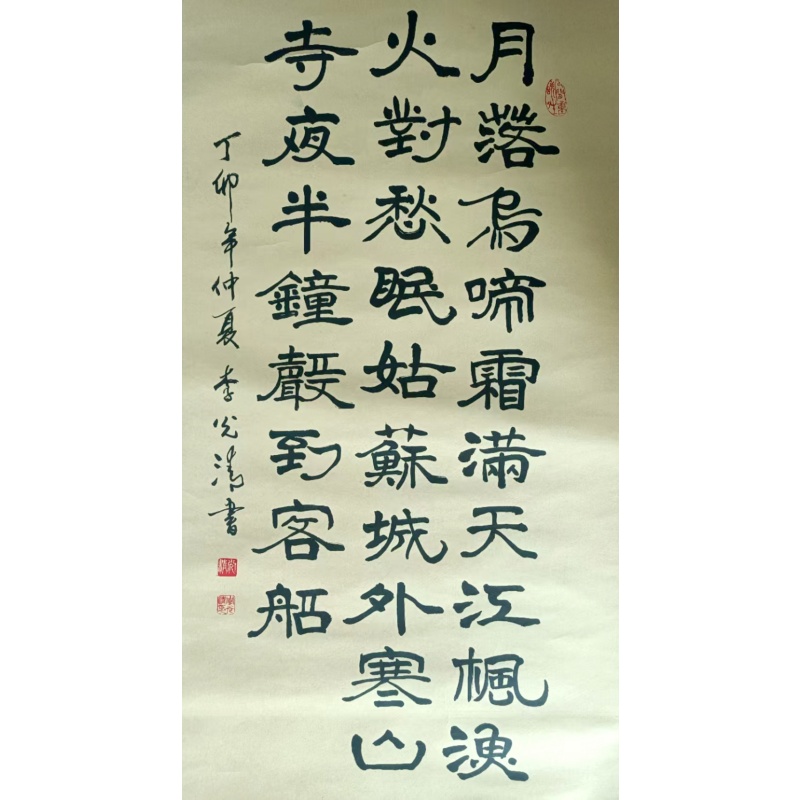 月落烏啼霜滿天江楓漁
火對愁眠姑蘇城外寒山
寺夜半鐘聲到客船
丁卯年仲夏 李光清書